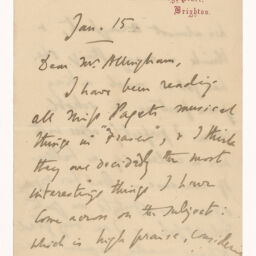 Brighton.
Jan. 15
Dear Mr. Allingham,
I have been reading
all Miss Pagets musical
things in "Fraser", & I think
they are decidedly the most
interesting things I have
come across on the subject:
which is high praise, considering